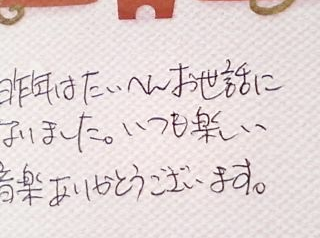 昨年はたいへんお世話に
なりました。いつも楽しい
音楽ありがとうございます。